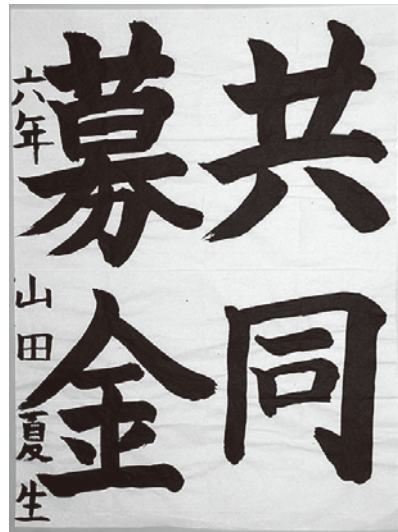 共同
募金
六年 山田夏生